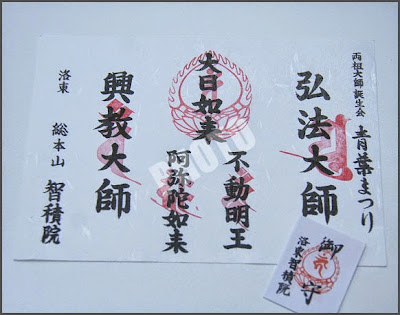 両祖大師誕生会
青葉まつり
弘法大師
不動明王
大日如来
阿弥陀如来
興教大師
洛東 総本山 智積院
御守
洛東智積院
PHOTO